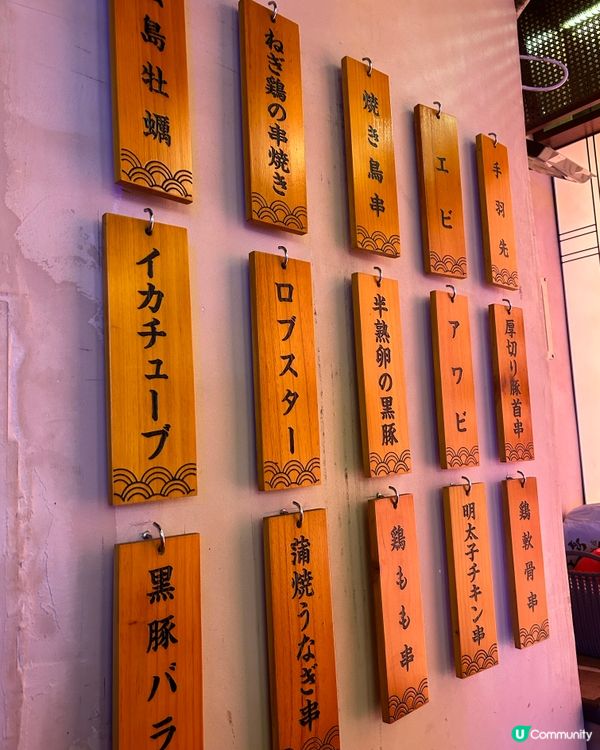 島牡蠣
ねぎ鶏の串焼き
焼き鳥串
エビ
手羽先
イカチューブ
ロブスター
半熟卵の黒豚
アワビ
厚切り豚首串
黒豚バラ
蒲焼うなぎ串
鶏もも串
明太子チキン串
鶏軟骨串
U Community